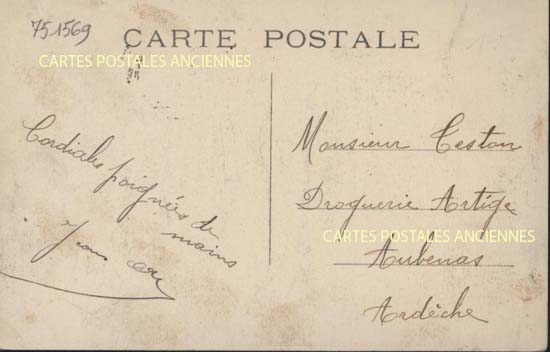 751569
CARTE POSTALE
CARTES POSTALES ANCIENNES
Cordiales poignées de
mains
Jean
Monsieur Teston
Droguerie Artige
CARTES POSTALES ANCIENNES
Aubenas
Ardèche